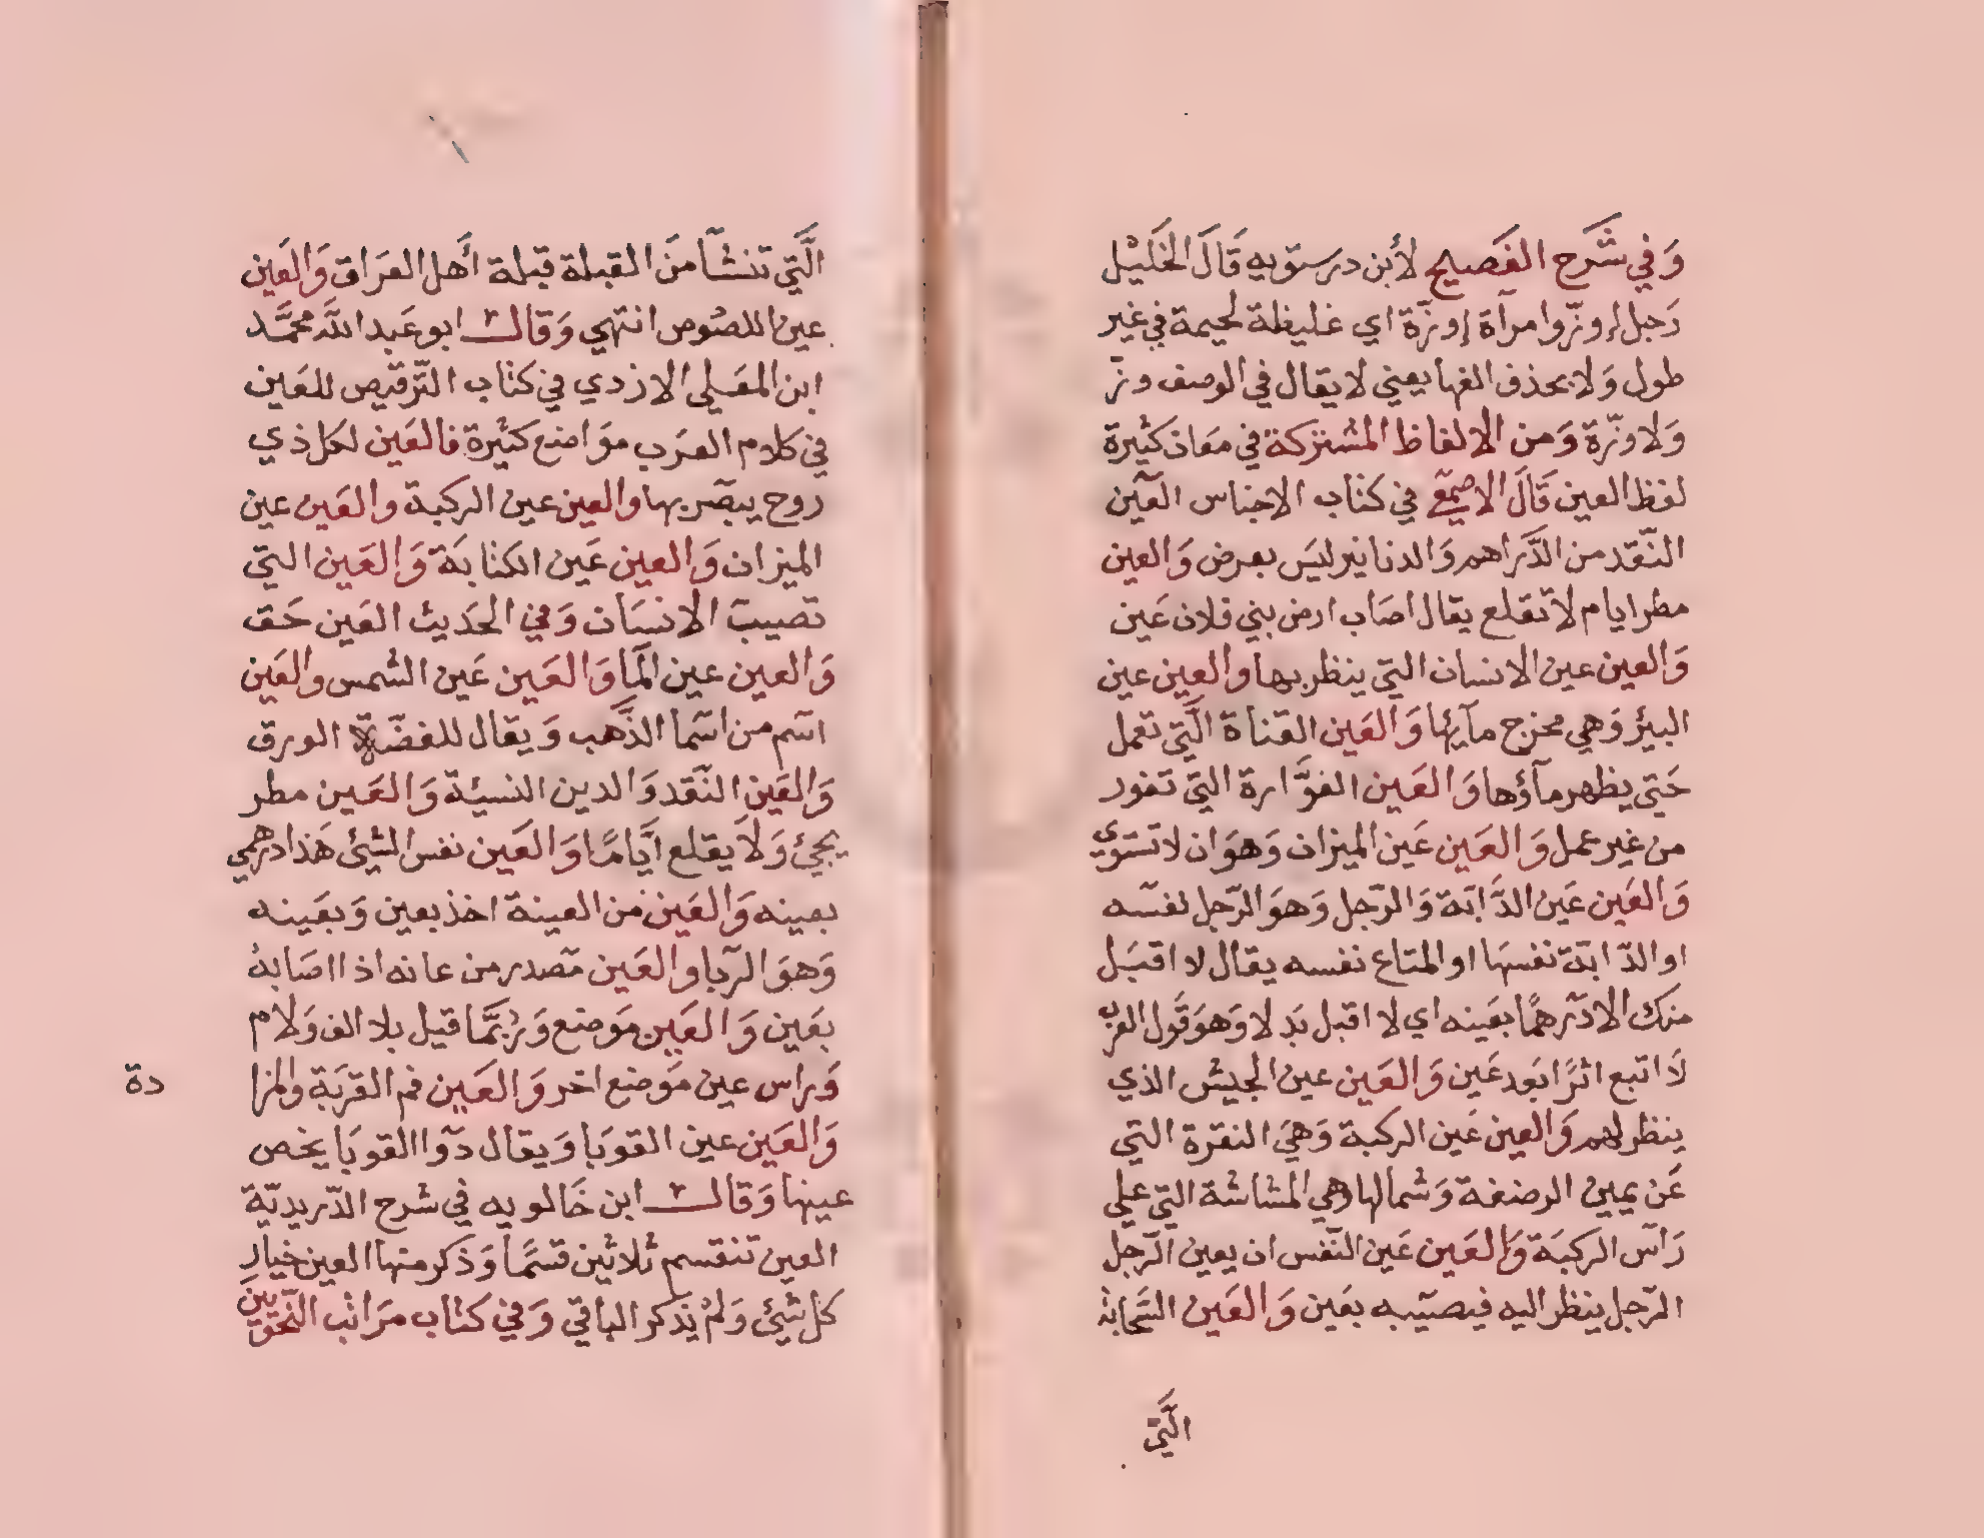 وَفي شَرح الفَصيح لأبن درستويه قَالَ الخَليْل
رَجل إوزّ وامرآة إوزّة اي غليظة لحيمة في غير
طول وَلا يحذف الفها يعني لا يقال في الوصف وزّ
وَلا وزّة وَمن الالفاظ المشتركة في معان كثيرة
لفظ العين قَالَ الاصمعي في كتاب الاجناس العَين
النّقد من الدَّراهم وَالدنانير ليَس بعرض وَالعين
مطر ايام لا تقلع يقال اصَاب ارض بني فلان عَين
وَالعين عين الانسان التي ينظر بها والعين عين
البئر وَهي مخرج مآئها وَالعَين القناة الَّتي تعمل
حَتي يظهر مآؤها وَالعَين الفوَّارة التي تفور
من غير عمل وَالعَين عَين الميزان وَهوَ ان لا تستوي
وَالعَين عَين الدَّابّة وَالرّجل وَهوَ الرّجل نفسه
او الدّابّة نفسها او المتاع نفسه يقال لا اقبَل
منك الا درهمًا بعَينه اي لا اقبل بَدلا وَهوَ قَول العرب
لَا اتبع اثرًا بَعد عَين وَالعَين عين الجيش الذي
ينظر لهم وَالعين عَين الركبة وَهيَ النقرة التي
عَن يمين الرضفة وَشمالها وهي المشاشة التي علي
رَآس الركبَة وَالعَين عَين النّفس ان يعين الرّجل
الرّجل ينظر اليه فيصيبه بعَين وَالعَين السَّحابة
الَّتي
الَّتي تنشآ منَ القبلة قبلة اَهل العرَاق وَالعَين
عين اللصُوص انتهي وَقال ابو عَبد اللَّه محمَّد
ابن المعَلي الازدي في كتاب التّرقيص للعَين
في كلام العرَب موَاضع كثيرة فالعَين لكل ذي
روح يبصر بها والعين عين الركبة والعَين عين
الميزان وَالعين عَين الكتابَة وَالعَين التي
تصيب الانسَان وَفي الحَديث العَين حَق
وَالعين عين المَا وَالعَين عَين الشمس والعَين
اسم من اسَما الذَّهب وَيقال للفضّة الورق
وَالعَين النَّقد وَالدين النسيئة وَالعَين مطر
يجيئ وَلَا يقلع ايَّامًا وَالعَين نفس الشيئ هَذا درهمي
بعينه وَالعَين من العينة اخذ بعين وَبعَينه
وَهوَ الرّبا والعَين مَصدر من عانه اذا اصَابهُ
بعَين وَالعَين مَوضع وَرُبَّمَا قيل بلا الف وَلَام
وَراس عين مَوضع اخر وَالعَين فم القربَة والمزا
دة
وَالعَين عين القوبَا وَيقال دَوا القوبَا يخص
عينها وَقال ابن خَالويه في شرح الدّريديّة
العين تنقسم ثلاثين قسمًا وَذكر منها العين خيار
كل شيئ وَلمْ يَذكر الباقي وَفي كتاب مرَاتب النّحويّين